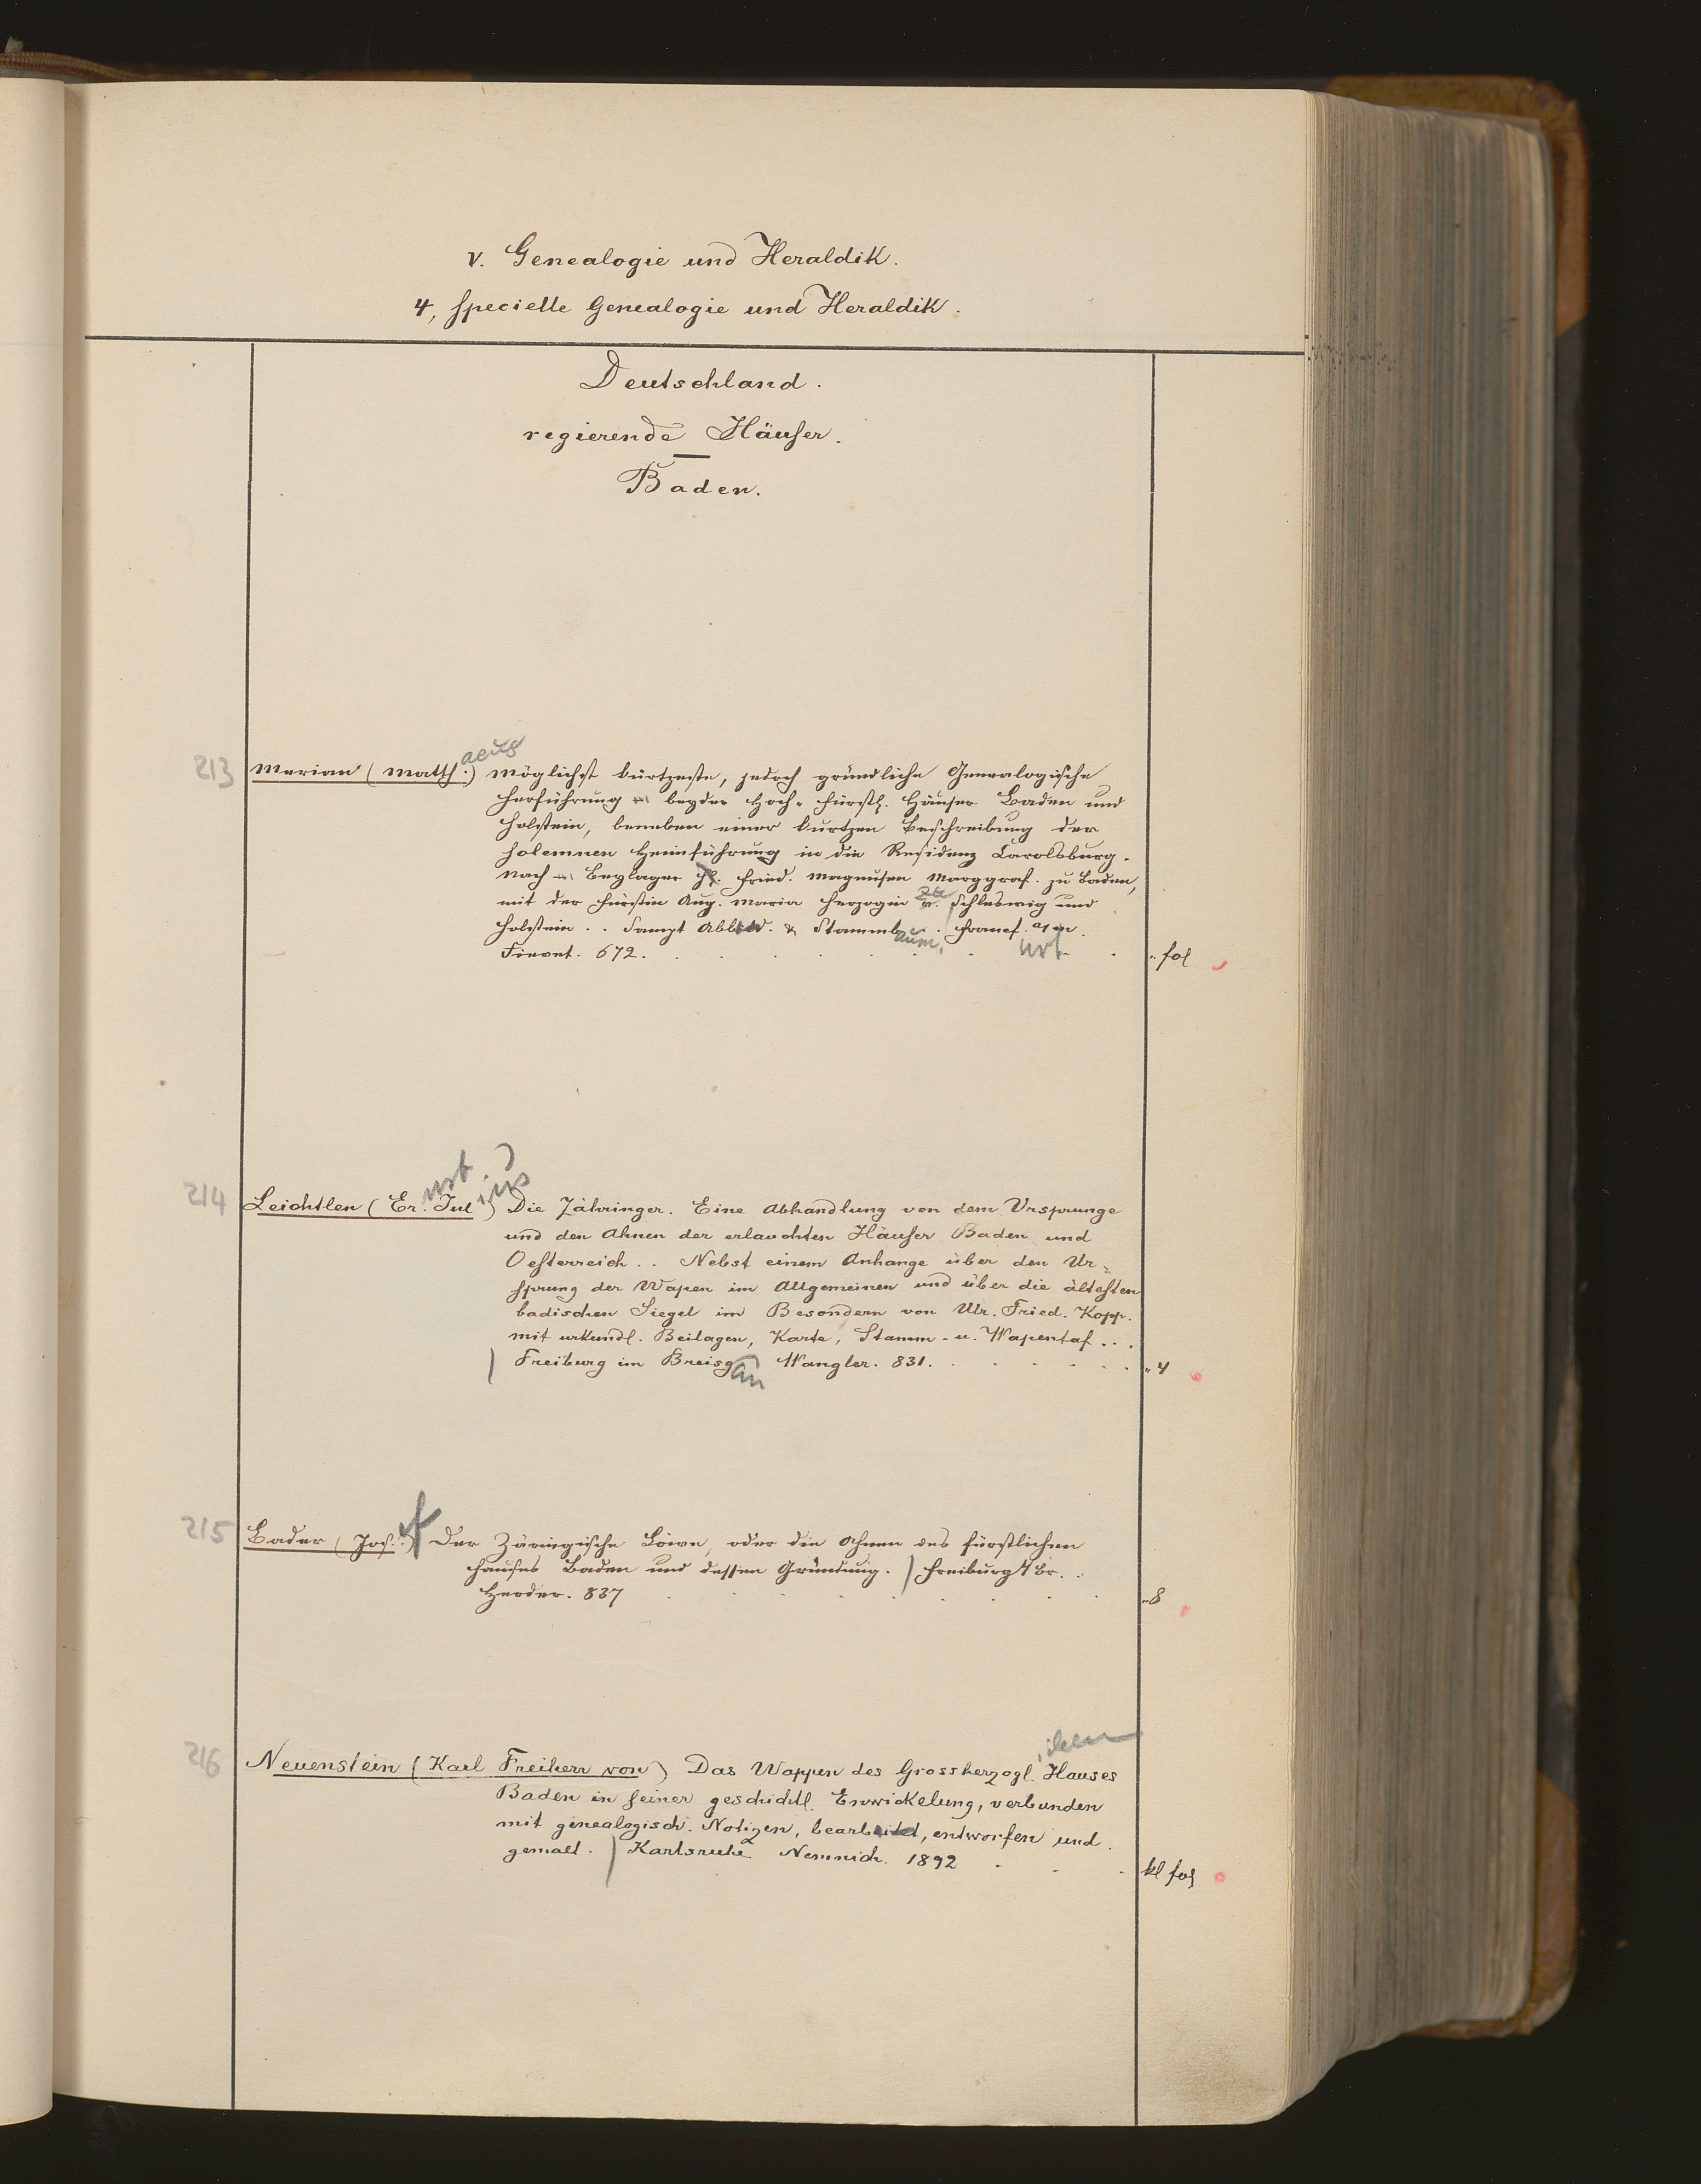 V. Genealogie und Heraldik.
4, specielle Genealogie und Heraldik.
Deutschland.
regierende Häuser.
Baden.
aeus
213 Merian (Matth.) möglichst kürtzeste, jedoch gründliche Genealogische
Herführung beyder Hoch-fürstl. Häuser Baden und
Holstein, beneben einer kurtzen Beschreibung der
solemnen Heimführung in die Residenz Carolsburg.
nach Beylager Fried. Magnusen Marggraf. zu Baden,
zu
mit der Fürstin Aug. Maria Herzogin v. Schleswig und
Holstein . . Sampt Abbild. & Stammb . . Francf. a/m.
aum. urt
Fievet. 672. fol
nst ius
214 Leichtlen (Er. Jul) Die Zähringer. Eine Abhandlung von dem Ursprunge
und den Ahnen der erlauchten Häuser Baden und
Oesterreich . . Nebst einem Anhange über den Ur-
sprung der Wapen im Allgemeinen und über die ältesten
badischen Siegel im Besondern von Ulr. Fried. Kopp.
mit urkundl. Beilagen, Karte, Stamm- u. Wapentaf . . .
Freiburg im Breisg Wangler. 831. 4
au
215 Bader (Jos.) Der Zäringische Löwe, oder die Ahnen des fürstlichen
Hauses Baden und dessen Gründung. Freiburg i/Br.
Herder. 837 8
ichen
216 Neuenstein (Karl Freiherr von) Das Wappen des Grossherzogl. Hauses
Baden in seiner geschichtl. Enwickelung, verbunden
mit genealogisch. Notizen, bearbeitet, entworfen und
gemalt. Karlsruhe Nemnich. 1892 kl fol